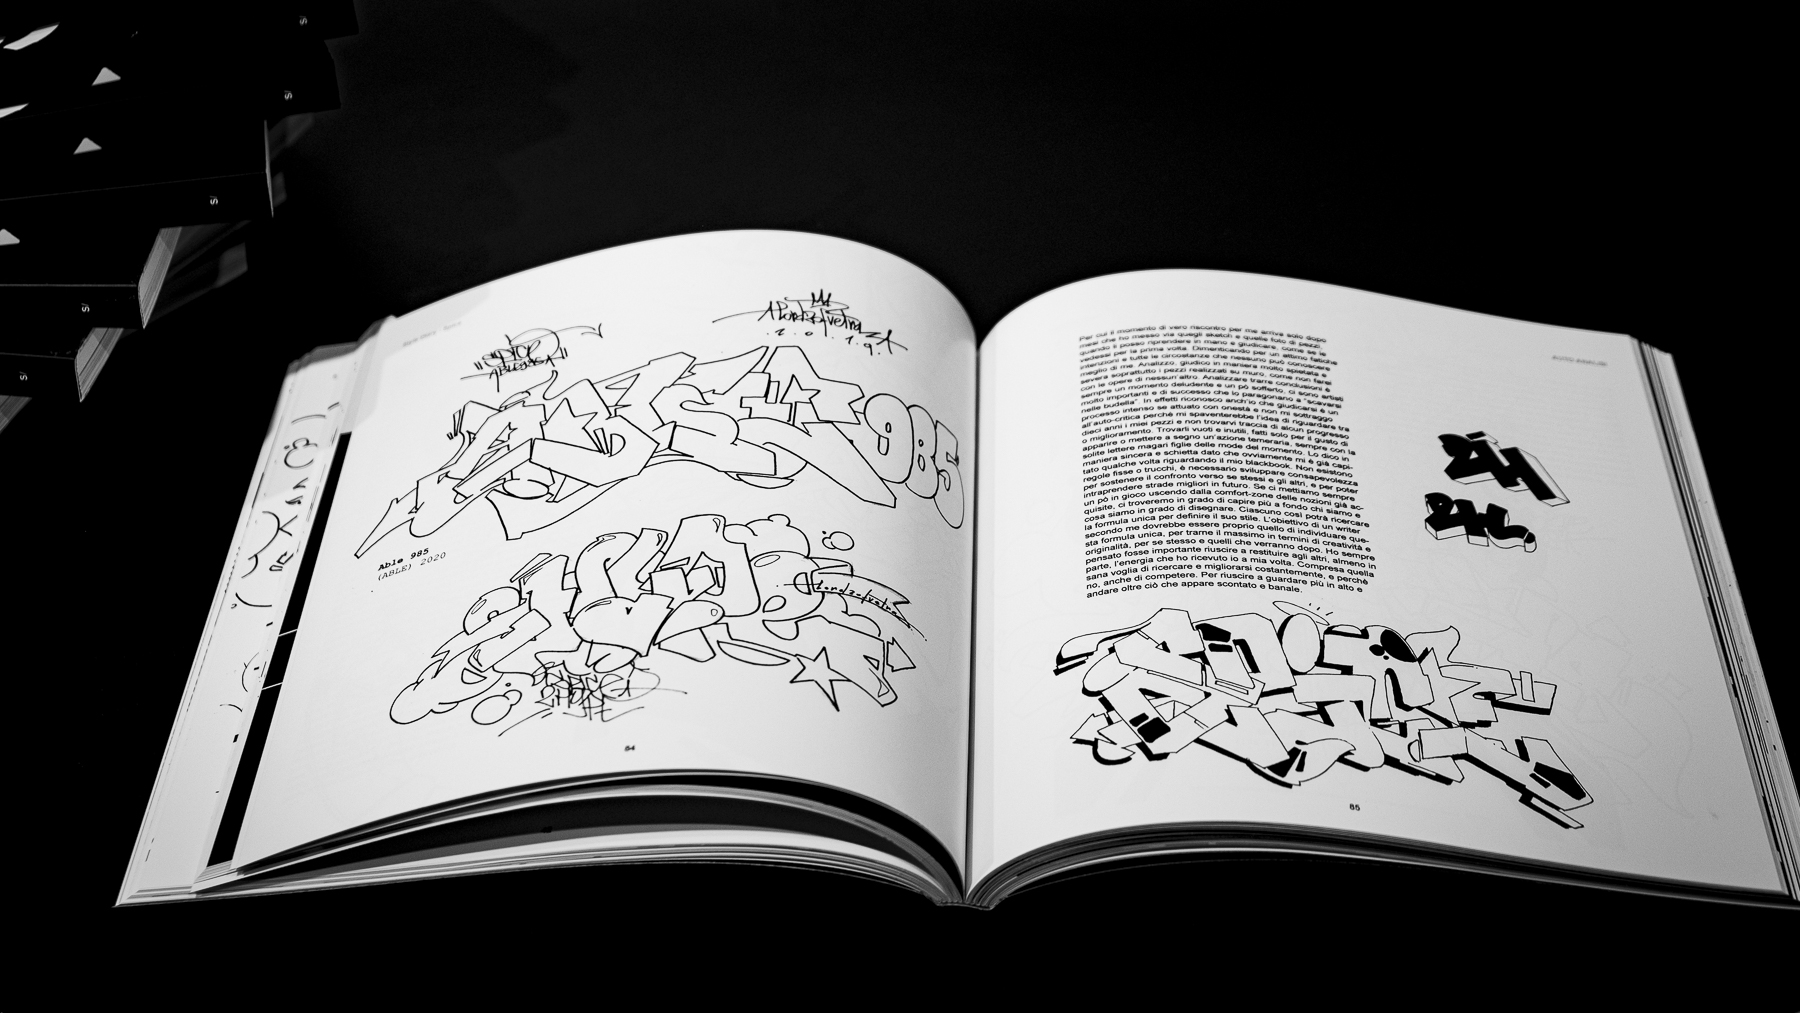 2.0.1.9.
985
Able 985
(ABLE) 2020
84
Per cui il momento di vero riscontro per me arriva solo dopo
mesi che ho messo via quegli sketch e quelle foto di pezzi,
quando li posso riprendere in mano e giudicare, come se le
vedessi per la prima volta. Dimenticando per un attimo fatiche
intenzioni e tutte le circostanze che nessuno può conoscere
meglio di me. Analizzo, giudico in maniera molto spietata e
severa soprattutto i pezzi realizzati su muro, come non farei
con le opere di nessun'altro. Analizzare trarre conclusioni è
sempre un momento deludente e un pò sofferto, ci sono artisti
molto importanti e di successo che lo paragonano a "scavarsi
nelle budella". In effetti riconosco anch'io che giudicarsi è un
processo intenso se attuato con onestà e non mi sottraggo
all'auto-critica perchè mi spaventerebbe l'idea di riguardare tra
dieci anni i miei pezzi e non trovarvi traccia di alcun progresso
o miglioramento. Trovarli vuoti e inutili, fatti solo per il gusto di
apparire o mettere a segno un'azione temeraria, sempre con la
solite lettere magari figlie delle mode del momento. Lo dico in
maniera sincera e schietta dato che ovviamente mi è già capi-
tato qualche volta riguardando il mio blackbook. Non esistono
regole fisse o trucchi, è necessario sviluppare consapevolezza
per sostenere il confronto verso se stessi e gli altri, e per poter
intraprendere strade migliori in futuro. Se ci mettiamo sempre
un pò in gioco uscendo dalla comfort-zone delle nozioni già ac-
quisite, ci troveremo in grado di capire più a fondo chi siamo e
cosa siamo in grado di disegnare. Ciascuno così potrà ricercare
la formula unica per definire il suo stile. L'obiettivo di un writer
secondo me dovrebbe essere proprio quello di individuare que-
sta formula unica, per trarne il massimo in termini di creatività e
originalità, per se stesso e quelli che verranno dopo. Ho sempre
pensato fosse importante riuscire a restituire agli altri, almeno in
parte, l'energia che ho ricevuto io a mia volta. Compresa quella
sana voglia di ricercare e migliorarsi costantemente, e perchè
no, anche di competere. Per riuscire a guardare più in alto e
andare oltre ciò che appare scontato e banale.
85